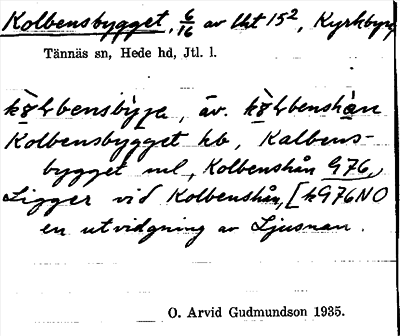 Kolbensbygget, 6/16 av lht 15², Kyrkbyn
Tännäs sn, Hede hd, Jtl. l.
av.
Kolbensbygget hb, Kalbens-
bygget ml, Kolbenshån 976,
Ligger vid Kolbenshån, [k976NO
en utvidgning av Ljusnan.
O. Arvid Gudmundson 1935.